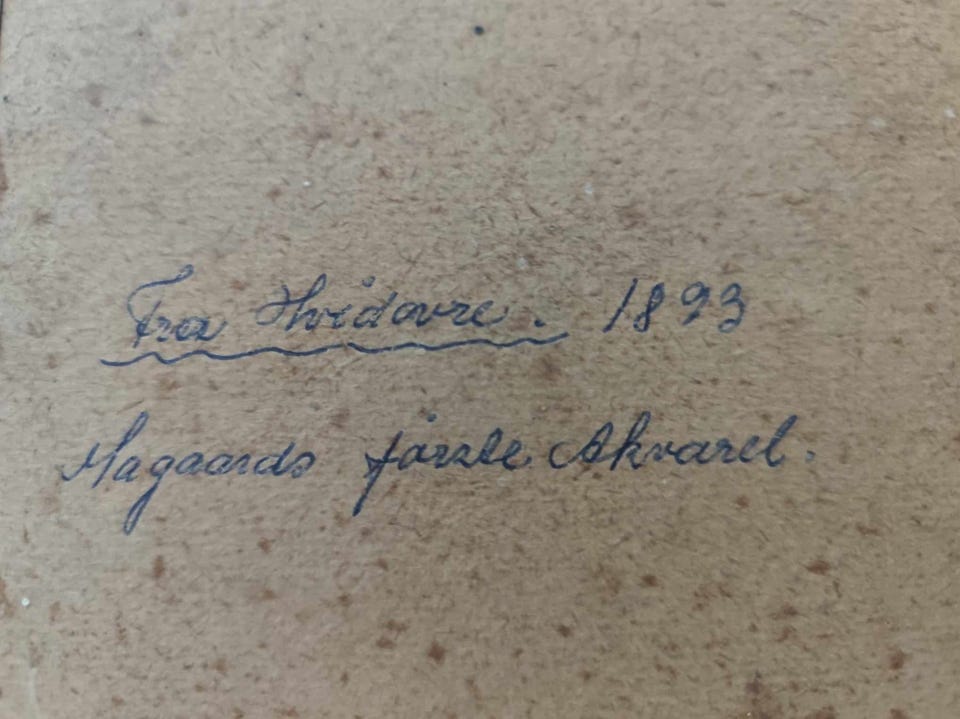 Fra Hvidovre. 1893
Aagaards første Akvarel.